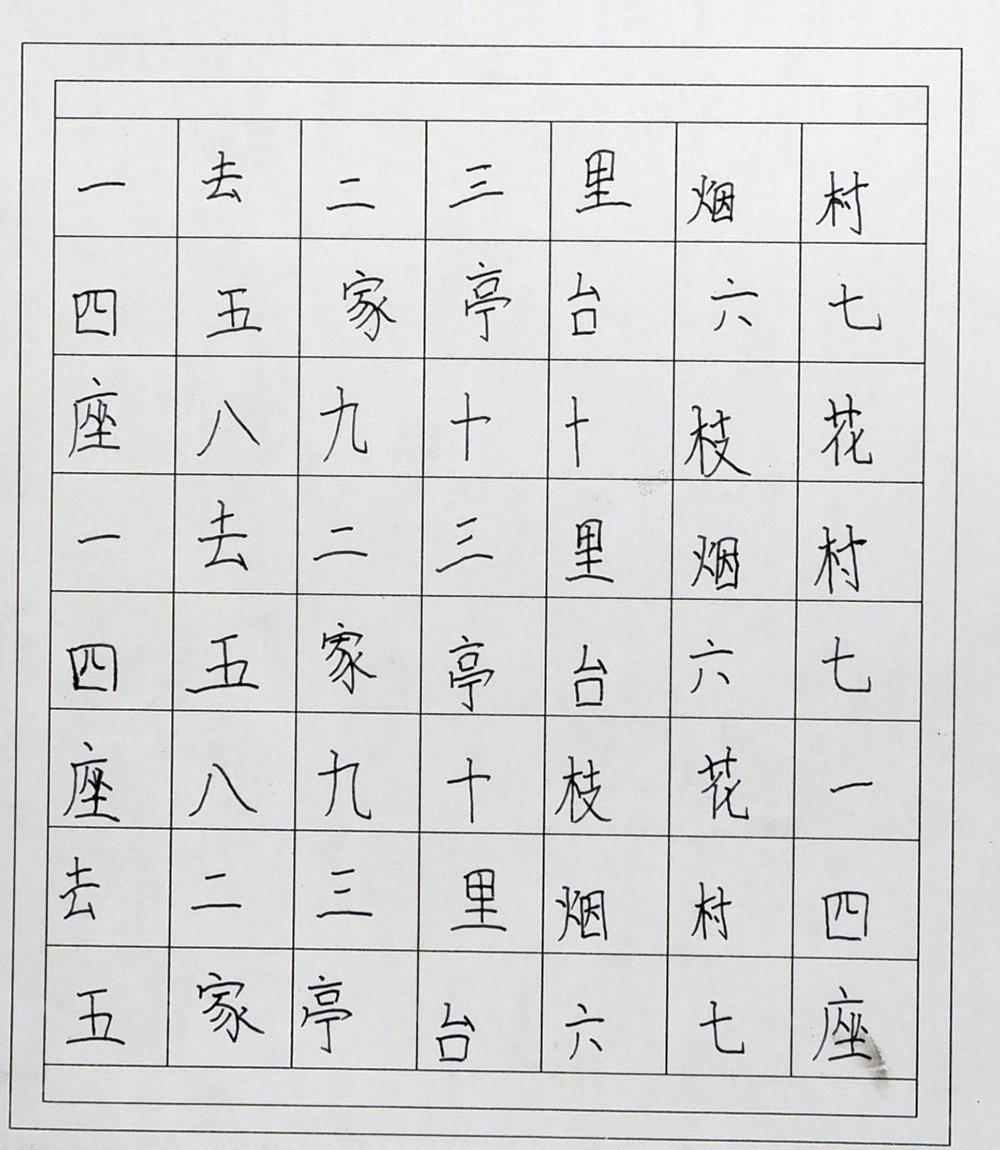 一去二三里烟村
四五家亭台六七
座八九十十枝花
一去二三里烟村
四五家亭台六七
座八九十枝花一
去二三里烟村四
五家亭台六七座